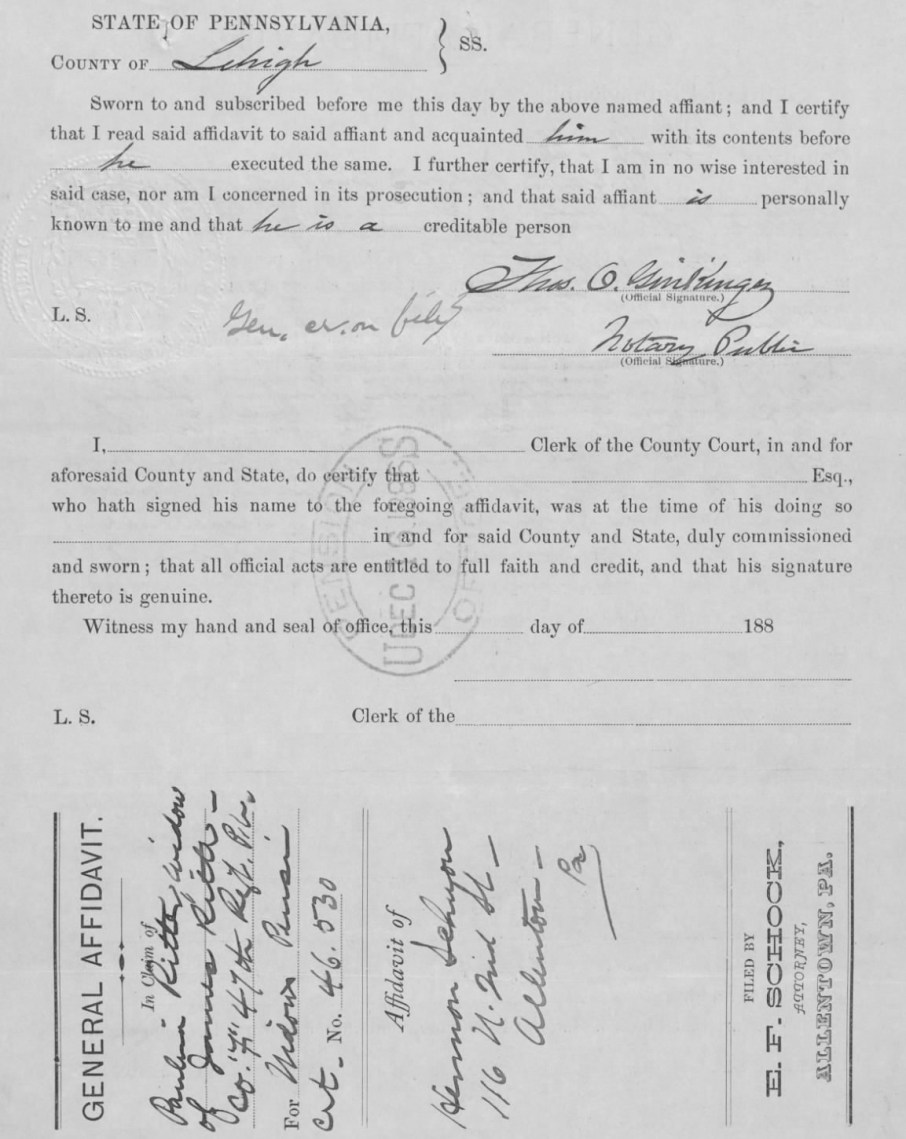 STATE OF PENNSYLVANIA,
COUNTY OF Lehigh } SS.
Sworn to and subscribed before me this day by the above named affiant; and I certify
that I read said affidavit to said affiant and acquainted him with its contents before
he executed the same. I further certify, that I am in no wise interested in
said case, nor am I concerned in its prosecution; and that said affiant is personally
known to me and that he is a creditable person
Thos. O. Ginkinger
(Official Signature.)
L. S.
Gen. er. on file
Notary Public
(Official Signature.)
I, Clerk of the County Court, in and for
aforesaid County and State, do certify that Esq.,
who hath signed his name to the foregoing affidavit, was at the time of his doing so
in and for said County and State, duly commissioned
and sworn; that all official acts are entitled to full faith and credit, and that his signature
thereto is genuine.
Witness my hand and seal of office, this day of 188
L. S. Clerk of the
PENSION
DEC
OFFICE
GENERAL AFFIDAVIT.
In Claim of
Paulina Ritter, widow
of James Ritter
Co. "F" 47th Regt. P.V.
For Widows Pension
Crt. No. 46.530
Affidavit of
Hermon Schuyon
116 N. 2nd St
Allentown
Pa
FILED BY
E. F. SCHOCK,
ATTORNEY,
ALLENTOWN, PA.